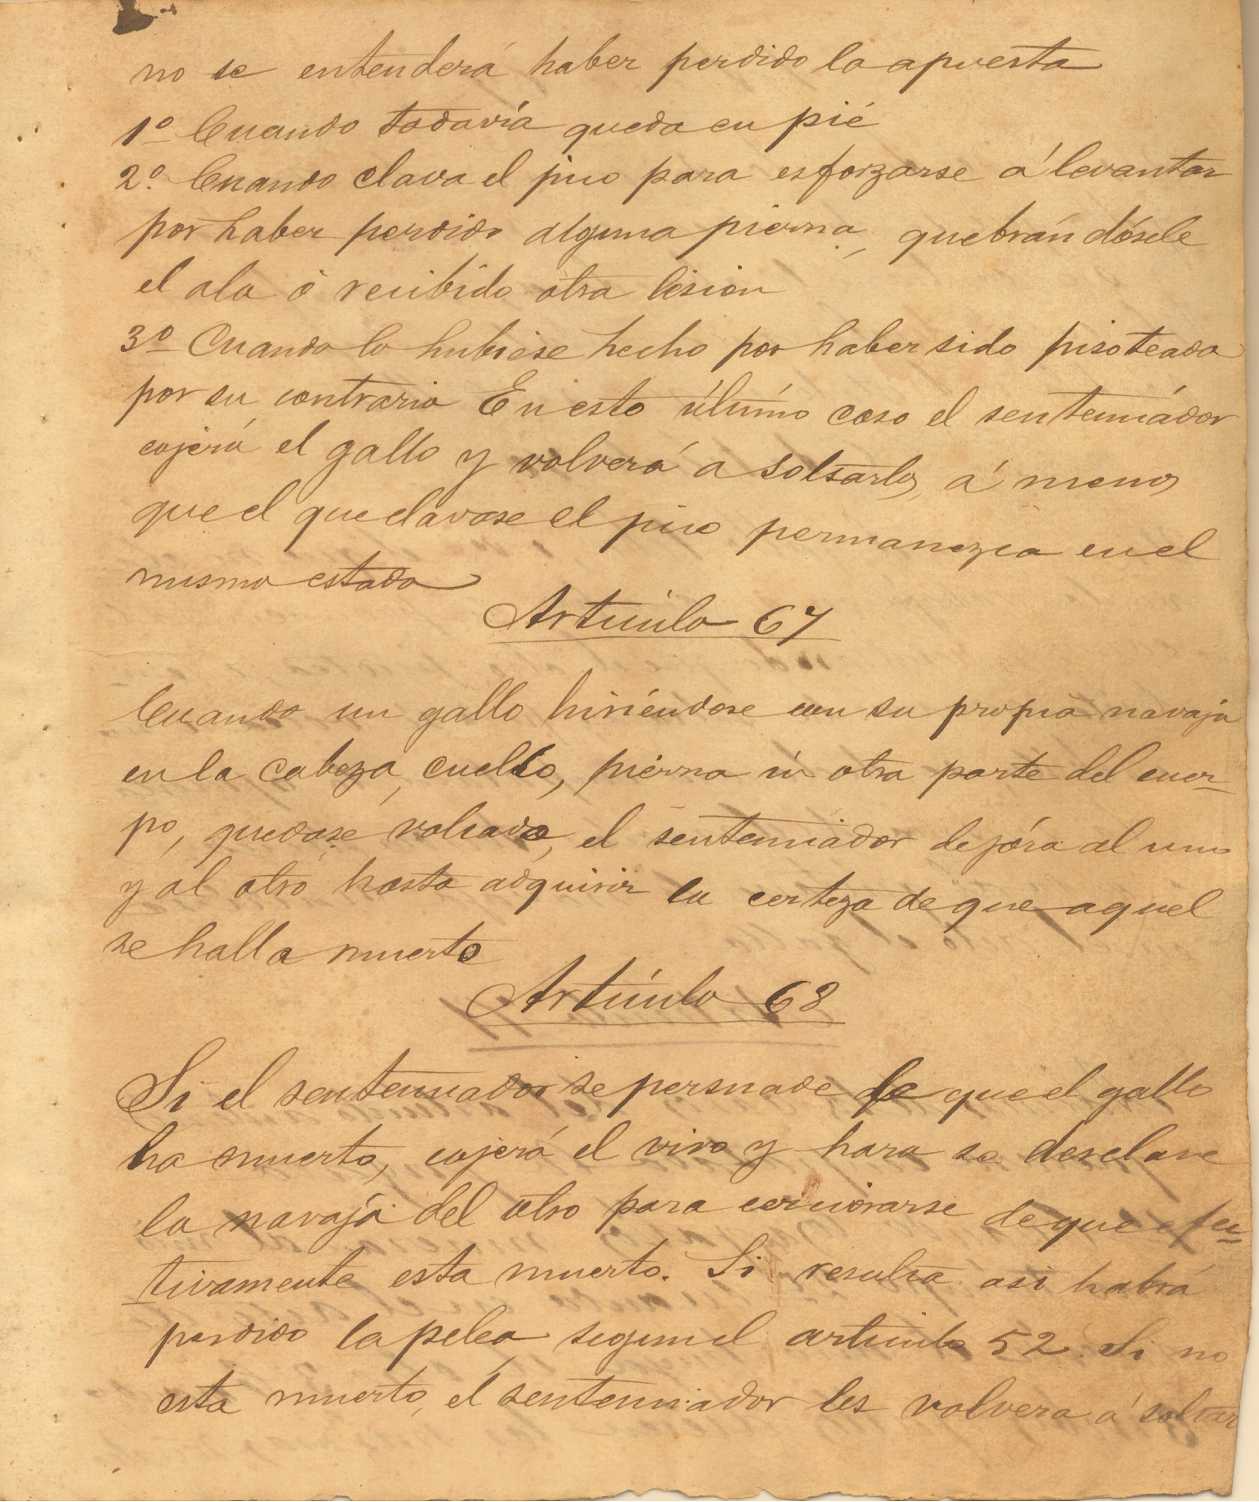 no se entenderá haber perdido la apuesta
1º Cuando todavía queda en pié
2º Cuando clava el pico para esforzarse á levantar
por haber perdido alguna pierna, quebrándósele
el ala ó recibido otra lesion
3º Cuando lo hubiese hecho por haber sido pisoteado
por su contrario En esto último caso el sentenciador
cojerá el gallo y volverá a soltarlo, á menos
que el que clavase el pico permanezca en el
mismo estado
Artículo 67
Cuando un gallo hiriéndose con su propia navaja
en la cabeza, cuello, pierna ú otra parte del cuer-
po, quedase volcado, el sentenciador dejára al uno
y al otro hasta adquirir la certeza de que aquel
se halla muerto
Artículo 68
Si el sentenciador se persuade de que el gallo
ha muerto, cojerá el vivo y hara se desclave
la navaja del otro para cerciorarse de que efec-
tivamente esta muerto. Si resulta asi habrá
perdido la pelea segun el articulo 52. Si no
esta muerto, el sentenciador les volvera á soltar